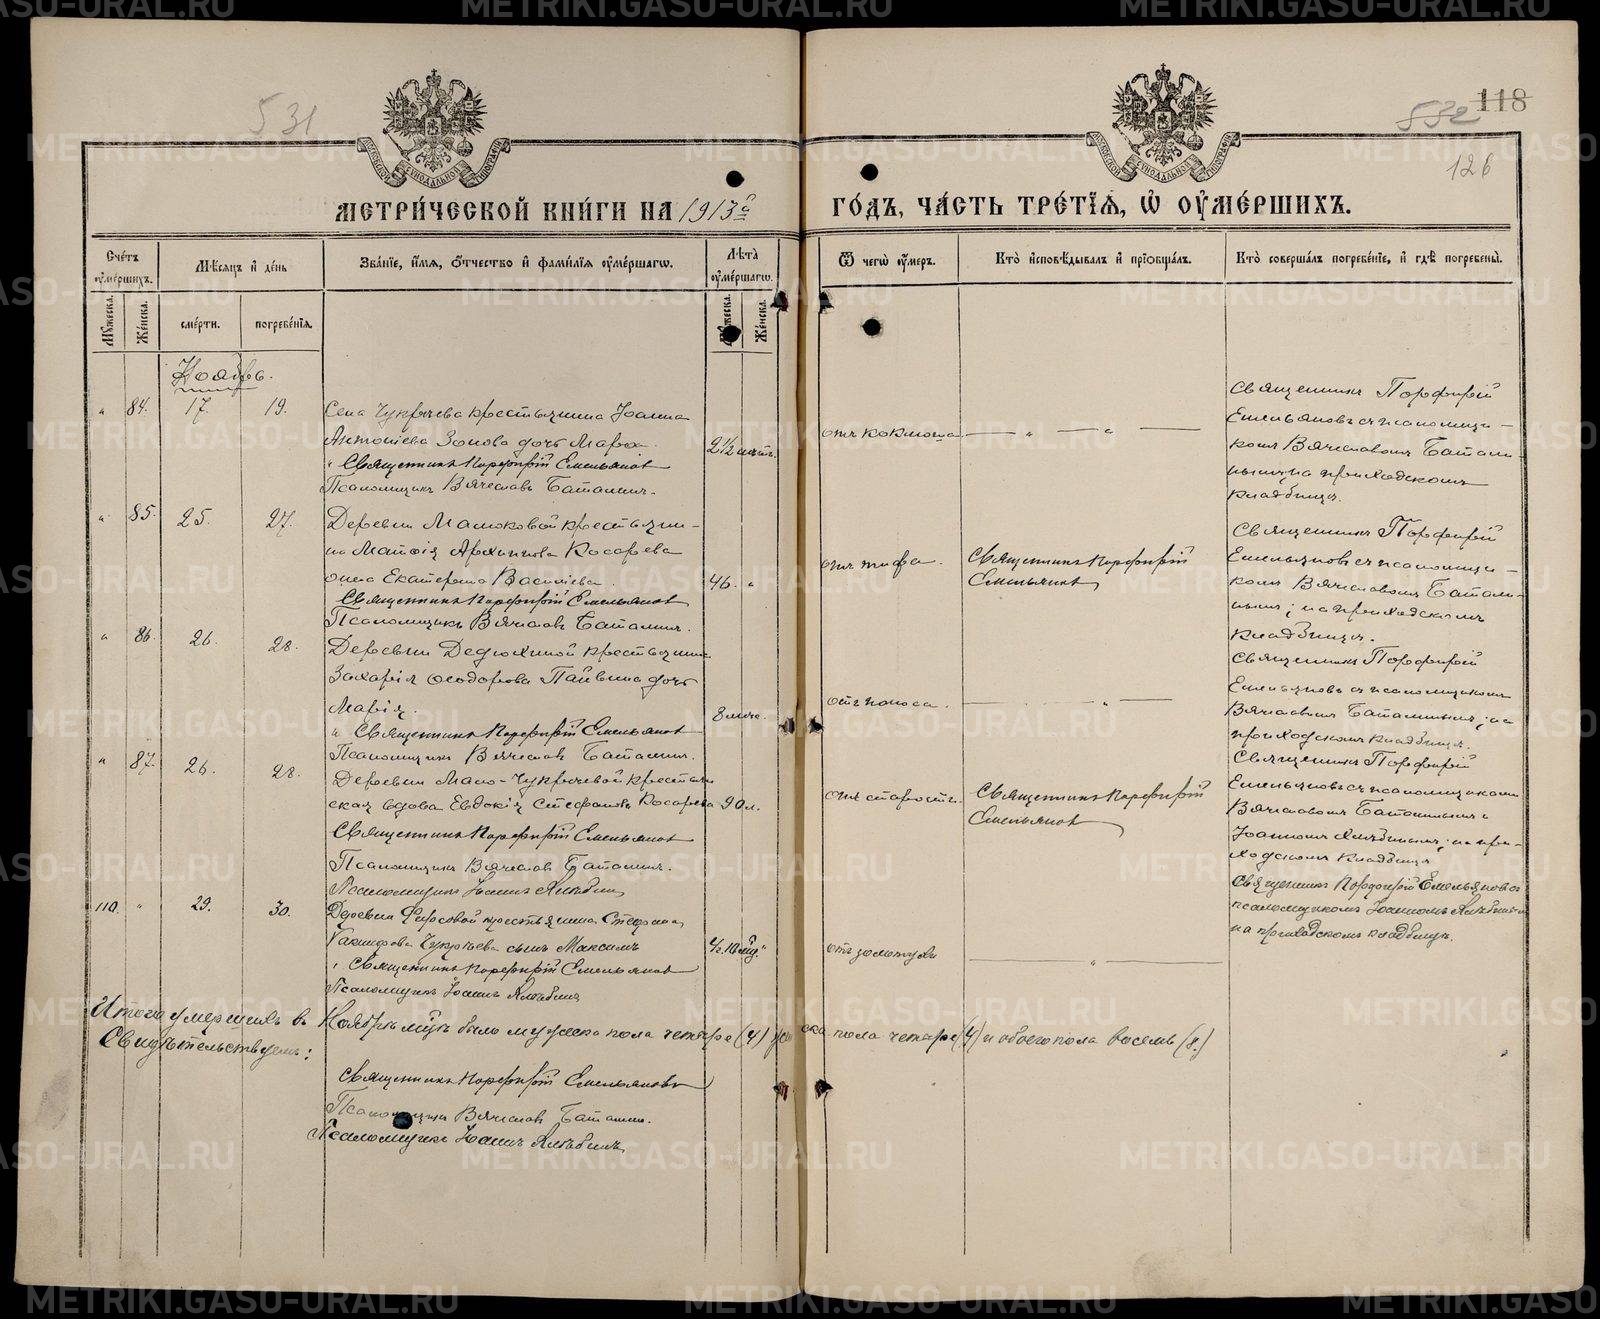 531
532
118
126
МЕТРИ́ЧЕСКОЙ КНИ́ГИ НА 1913 г.
ГО́ДЪ, ЧА́СТЬ ТРЕ́ТЇѦ, Ѡ ОУМЕ́РШИХЪ.
Сче́тъ оумершихъ.
Мѣ́сяцъ и де́нь
Зва́нїе, и́мя, о́тчество и фами́лїя оуме́ршагѡ.
Лѣ́та оуме́ршагѡ.
Ѿ чегѡ̀ оу́меръ.
Кто̀ и҆сповѣ́дывалъ и҆ прїобща́лъ.
Кто̀ соверша́лъ погребе́нїе, и҆ гдѣ̀ погребены̀.
Мꙋ́жеска.
Же́нска.
сме́рти.
погребе́нїя.
Мꙋ́жеска.
Же́нска.
Ноябрь.
" 84. 17. 19. Села Чукреева крестьянина Іоанна
Антоніева Зонова дочь Марѳа. 2 1/2 мѣс.
" Священникъ Порфирій Емельяновъ
Псаломщикъ Вячеславъ Баталинъ.
отъ коклюша. — " — " —
Священникъ Порфирій
Емельяновъ съ псаломщи-
комъ Вячеславомъ Батали-
нымъ на приходскомъ
кладбищѣ.
" 85. 25. 27. Деревни Малюковой крестьяни-
на Матѳія Архипова Косарева
жена Екатерина Васильева. 46. "
Священникъ Порфирій Емельяновъ
Псаломщикъ Вячеславъ Баталинъ.
отъ тифа.
Священникъ Порфирій
Емельяновъ
Священникъ Порфирій
Емельяновъ съ псаломщи-
комъ Вячеславомъ Батали-
нымъ; на приходскомъ
кладбищѣ.
" 86. 26. 28. Деревни Дедюхиной крестьянина
Захарія Ѳеодорова Пайвина дочь
Марія. 8 мѣс.
" Священникъ Порфирій Емельяновъ
Псаломщикъ Вячеславъ Баталинъ.
отъ поноса. — " —
Священникъ Порфирій
Емельяновъ съ псаломщикомъ
Вячеславомъ Баталинымъ; на
приходскомъ кладбищѣ.
" 87. 26. 28. Деревни Мало-Чукреевой крестьян-
ская вдова Евдокія Стефанова Косарева 90 л.
Священникъ Порфирій Емельяновъ
Псаломщикъ Вячеславъ Баталинъ.
Псаломщикъ Іоаннъ
отъ старости.
Священникъ Порфирій
Емельяновъ
Священникъ Порфирій
Емельяновъ съ псаломщиками
Вячеславомъ Баталинымъ и
Іоанномъ на при-
ходскомъ кладбищѣ
110. " 29. 30. Деревни Фирсовой крестьянина Стефана
Чукреева сынъ Максимъ
" Священникъ Порфирій Емельяновъ
Псаломщикъ Іоаннъ
отъ золотухи — " —
Священникъ Порфирій Емельяновъ съ
псаломщикомъ Іоанномъ
на приходскомъ кладбищѣ.
Итого умершихъ въ Ноябрѣ м-цѣ было мужеска пола четыре (4) женска пола четыре (4) и обоего пола восемь (8.)
Свидѣтельствуемъ:
Священникъ Порфирій Емельяновъ
Псаломщикъ Вячеславъ Баталинъ.
Псаломщикъ Іоаннъ
METRIKI.GASO-URAL.RU